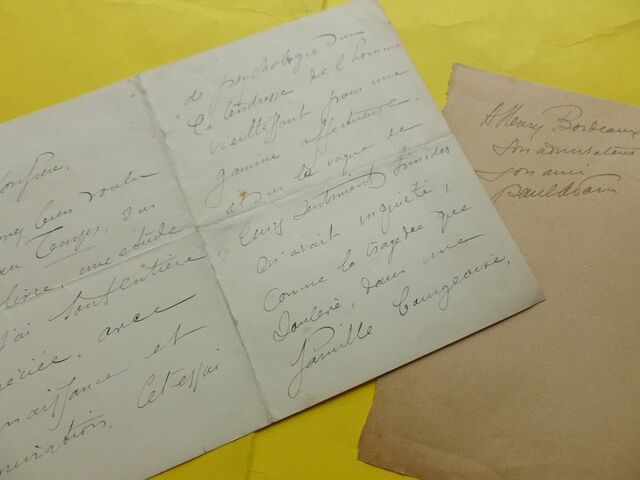 Confrère,
bien voulu
au Temps, sur
livre, une étude
j'ai
avec
et
Cet essai
de psychologie sur
la tendresse de l'homme
vieillissant pour une
gamine affectueuse
et sur la vague de
leurs sentiments timides
m'avait inquiété,
comme la tragédie que
dans une
famille bourgeoise,
A Henry Bordeaux
son admirateur
son ami
Paul Adam